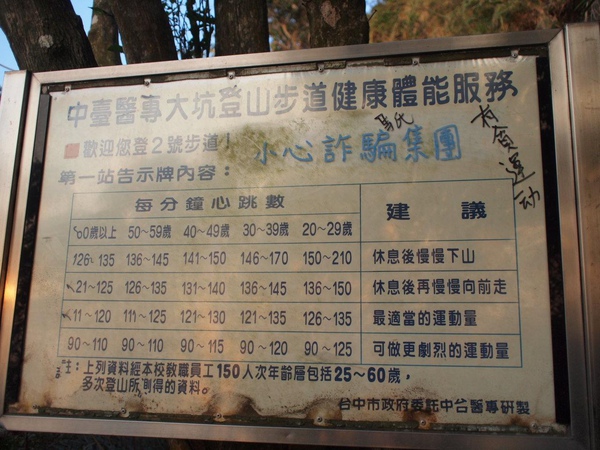 中臺醫專大坑登山步道健康體能服務
歡迎您登2號步道!
馬氏
小心詐騙集團
有貪運动
第一站告示牌內容：
每分鐘心跳數 建議
60歲以上 50~59歲 40~49歲 30~39歲 20~29歲
126~135 136~145 141~150 146~170 150~210 休息後慢慢下山
121~125 126~135 131~140 136~145 136~150 休息後再慢慢向前走
111~120 111~125 121~130 121~135 126~135 最適當的運動量
90~110 90~110 90~115 90~120 90~125 可做更劇烈的運動量
註：上列資料經本校教職員工150人次年齡層包括25~60歲，
多次登山所測得的資料。
台中市政府委託中台醫專研製